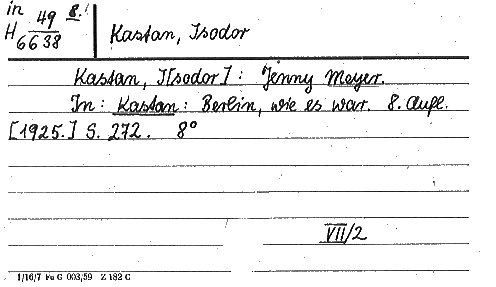 in
H 49 8.
6638
Kastan, Isodor
Kastan, I[sodor]: Jenny Meyer.
In: Kastan: Berlin, wie es war. 8. Aufl.
[1925.] S. 272. 8°
VII/2
1/16/7 Fu G 003/59 Z 182 C